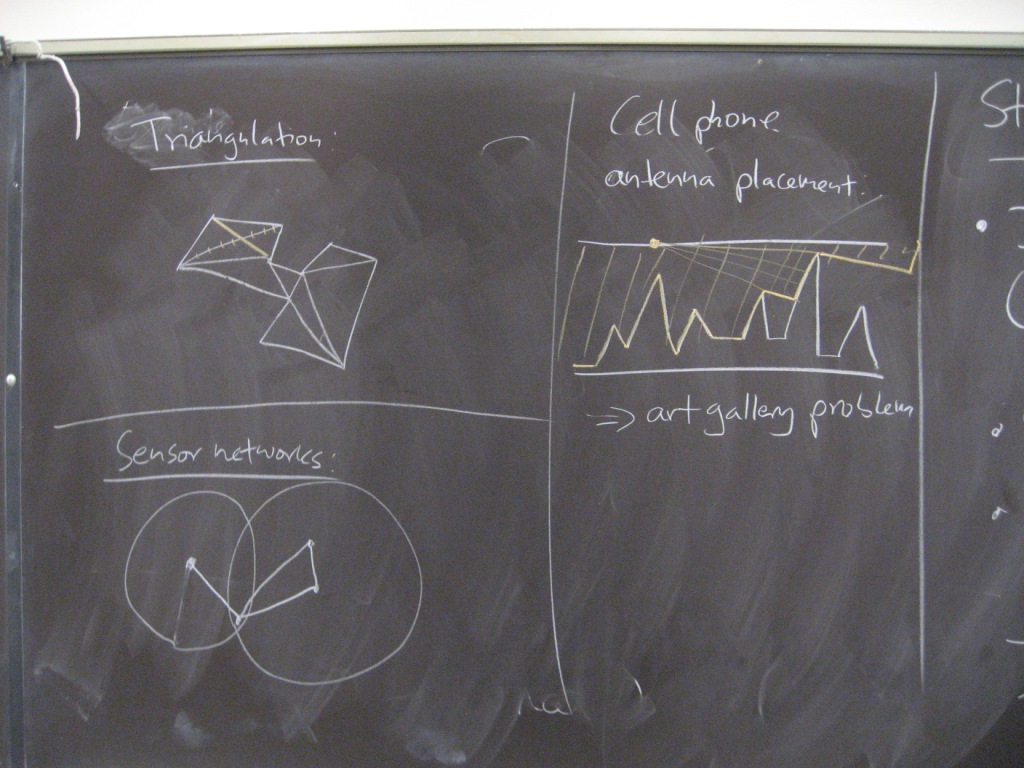 Triangulation:
Sensor networks:
Cell phone
antenna placement:
⇒ art gallery problem
St